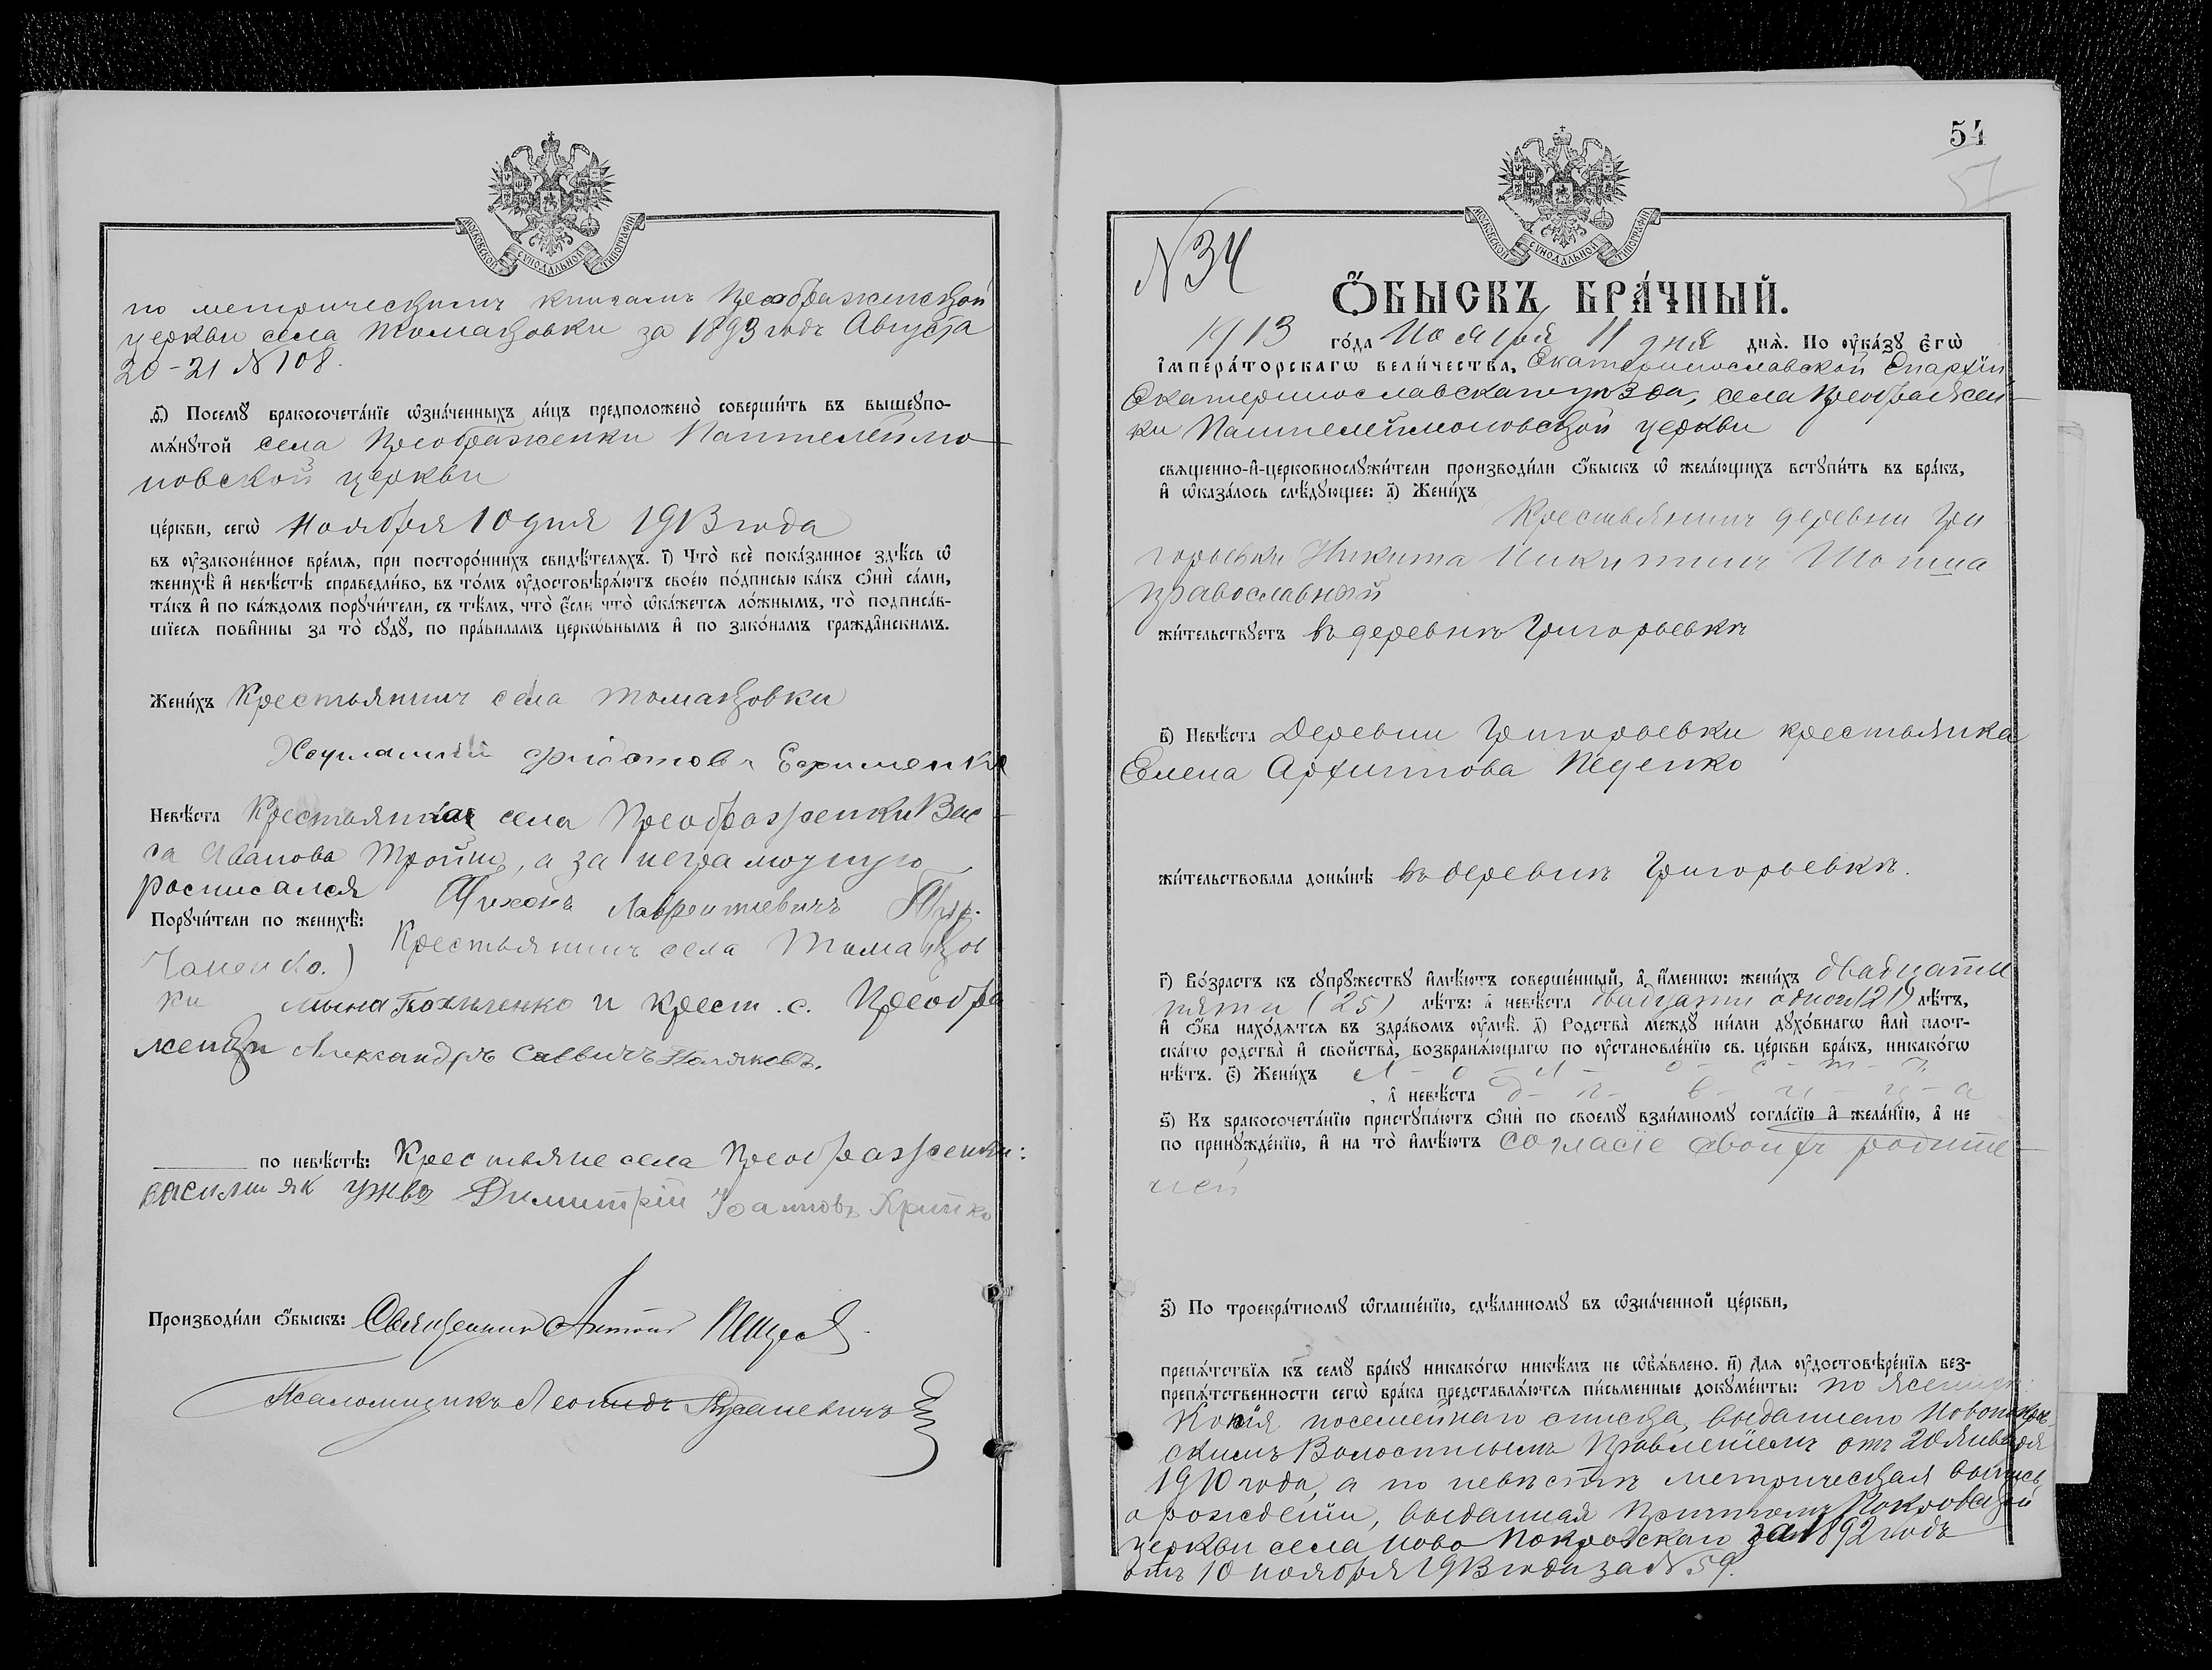 МОСКОВСКОЙ СѴНОДАЛЬНОЙ ТИПОГРАФІИ
по метрическимъ книгамъ Преображенской
церкви села Томаковки за 1893 годъ Августа
20-21 № 108.
д҃і) Посемꙋ̀ бракосочета́нїе ѡ҆зна́ченныхъ ли́цъ предположено̀ соверши́ть въ вышеꙋпо-
мѧ́нꙋтой села Преображенки Пантелеймо
новской церкви
це́ркви, сегѡ̀ Ноября 10 дня 1913 года
въ ᲂу҆зако́ненное вре́мѧ, при посторо́ннихъ свидѣ́телѧхъ. і҃) Что̀ всѐ пока́занное здѣ́сь ѡ҆
женихѣ̀ и҆ невѣ́стѣ справедли́во, въ то́мъ ᲂу҆достовѣрѧ́ютъ свое́ю по́дписью ка́къ ѻ҆нѝ са́ми,
та́къ и҆ по ка́ждомъ порꙋчи́тели, съ тѣ́мъ, что̀ є҆́сли что̀ ѡ҆ка́жетсѧ ло́жнымъ, то̀ подписа́в-
шїесѧ пови́нны за то̀ сꙋдꙋ̀, по пра́виламъ церко́внымъ и҆ по зако́намъ гражда́нскимъ.
Жени́хъ Крестьянинъ села Томаковки
Харлампій Ефименко
Невѣ́ста Крестьянка села Преображенки Вас
са Иванова, а за неграмотную
росписался Тихонъ Лаврентіевичъ
Порꙋчи́тели по женихѣ̀:
Крестьянинъ села Томаков
ки и крест. с. Преобра
женки Александръ Саввичъ Поляковъ.
по невѣ́стѣ: Крестьяне села Преображенки:
Димитрій Іоанновъ
Производи́ли ѻ҆́быскъ: Священникъ Антоній
Псаломщикъ Леонидъ
54
57
МОСКОВСКОЙ СѴНОДАЛЬНОЙ ТИПОГРАФІИ
N 34
Ѻ҆́БЫСКЪ БРА́ЧНЫЙ.
1913 го́да Ноября 11 дня днѧ̀. По ᲂу҆ка́зꙋ Є҆гѡ̀
І҆мпера́торскагѡ вели́чества, Екатеринославской Епархіи
Екатеринославскаго уѣзда, села Преображен-
ки Пантелеймоновской церкви
свѧщенно-и҆-церковнослꙋжи́тели производи́ли ѻ҆́быскъ ѡ҆ жела́ющихъ встꙋпи́ть въ бра́къ,
и҆ ѡ҆каза́лось слѣ́дꙋющее: а҃) Жени́хъ
Крестьянинъ деревни Гри
горьевки Никита Никитинъ
православный
жи́тельствꙋетъ въ деревнѣ Григорьевкѣ
в҃) Невѣ́ста Деревни Григорьевки крестьянка
Елена Архипова Педенко
жи́тельствовала доны́нѣ въ деревнѣ Григорьевкѣ.
г҃) Во́зрастъ къ сꙋпрꙋ́жествꙋ и҆мѣ́ютъ соверше́нный, а҆ и҆́менно: жени́хъ двадцати
пяти (25) лѣ́тъ: а҆ невѣ́ста двадцати одного (21) лѣ́тъ,
и҆ ѻ҆́ба нахо́дѧтсѧ въ здра́вомъ ᲂу҆мѣ̀. д҃) Родства̀ междꙋ̀ ни́ми дꙋхо́внагѡ и҆лѝ плот-
ска́гѡ родства̀ и҆ свойства̀, возбранѧ́ющагѡ по ᲂу҆становле́нїю св. це́ркви бра́къ, никако́гѡ
нѣ́тъ. є҃) Жени́хъ х - о - л - о - с - т - ъ
, а҆ невѣ́ста д - ѣ - в - и - ц - а
ѕ҃) Къ бракосочета́нїю пристꙋпа́ютъ ѻ҆нѝ по своемꙋ̀ взаи́мномꙋ согла́сїю и҆ жела́нїю, а҆ не
по принꙋжде́нїю, и҆ на то̀ и҆мѣ́ютъ согласіе своихъ родите-
лей
з҃) По троекра́тномꙋ ѡ҆глаше́нїю, сдѣ́ланномꙋ въ ѡ҆зна́ченной це́ркви,
препѧ́тствїѧ къ семꙋ̀ бра́кꙋ никако́гѡ никѣ́мъ не ѡ҆б̾ѧ́влено. и҃) Длѧ ᲂу҆достовѣре́нїѧ без-
препѧ́тственности сегѡ̀ бра́ка представлѧ́ютсѧ пи́сьменные докꙋме́нты: по женихѣ
Копія посемейнаго списка, выданнаго Новопокров-
скимъ Волостнымъ Правленіемъ отъ 20 Января
1910 года, а по невѣстѣ метрическая выпись
о рожденіи, выданная причтомъ Покровской
церкви села Ново Покровскаго за 1892 годъ
отъ 10 ноября 1913 года за № 59.